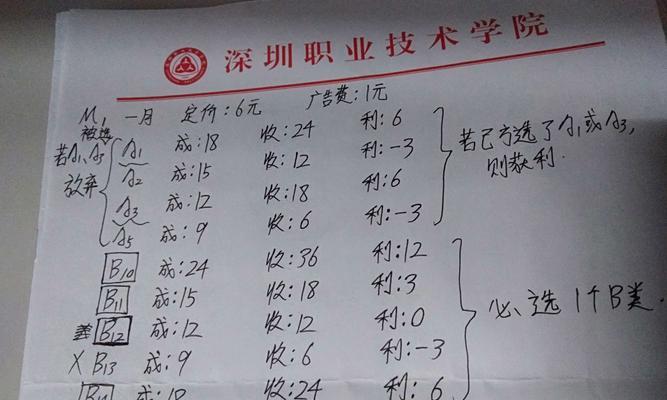 深圳职业技术学院
M₁ 一月 定价:6元 广告费:1元
被选
若A₁、A₃ A₁ 成:18 收:24 利:6
放弃 A₂ 成:15 收:12 利:-3
A₃ 成:12 收:18 利:6
A₅ 成:9 收:6 利:-3
若已方选了A₁或A₃,
则获利.
B₁₀ 成:24 收:36 利:12
B₁₁ 成:15 收:18 利:3
B₁₂ 成:12 收:12 利:0
X B₁₃ 成:9 收:6 利:-3
成:18 收:24 利:6
必选1个B类.